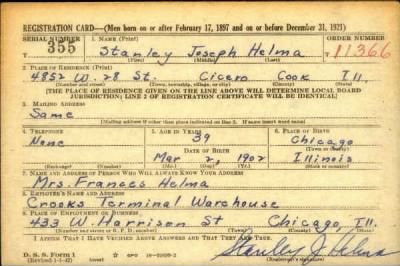 REGISTRATION CARD—(Men born on or after February 17, 1897 and on or before December 31, 1921)
SERIAL NUMBER 355
1. NAME (Print) Stanley Joseph Helma
ORDER NUMBER 11366
(First) (Middle) (Last)
2. PLACE OF RESIDENCE (Print)
4852 W. 28 St. Cicero Cook Ill.
(Number and street) (Town, township, village, or city) (County) (State)
[THE PLACE OF RESIDENCE GIVEN ON THE LINE ABOVE WILL DETERMINE LOCAL BOARD
JURISDICTION; LINE 2 OF REGISTRATION CERTIFICATE WILL BE IDENTICAL]
3. MAILING ADDRESS
Same
[Mailing address if other than place indicated on line 2. If same insert word same]
4. TELEPHONE
None
5. AGE IN YEARS
39
DATE OF BIRTH
Mar 2, 1902
(Mo.) (Day) (Yr.)
6. PLACE OF BIRTH
Chicago
(Town or county)
Illinois
(State or country)
7. NAME AND ADDRESS OF PERSON WHO WILL ALWAYS KNOW YOUR ADDRESS
Mrs. Frances Helma
8. EMPLOYER'S NAME AND ADDRESS
Crooks Terminal Warehouse
9. PLACE OF EMPLOYMENT OR BUSINESS
433 W. Harrison St Chicago, Ill.
(Number and street or R. F. D. number) (Town) (County) (State)
I AFFIRM THAT I HAVE VERIFIED ABOVE ANSWERS AND THAT THEY ARE TRUE.
D. S. S. Form 1
(Revised 1-1-42) (over)
Stanley J Helma
(Registrant's signature)